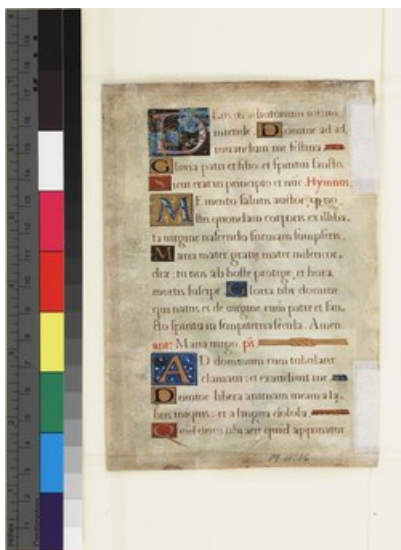 Deus in adiutorium meum
intende. Domine ad ad,
iuuandum me festina
Gloria patri et filio, et spiritui sancto.
Sicut erat in principio et nuc. Hymnus
Memento salutis auctor, no
stri quondam corporis ex illiba
ta uirgine nascendo formam sumpseris.
Maria mater gratię mater misericor,
dię: tu nos ab hoste protege, et hora
mortis suscipe. Gloria tibi domine
qui natus es de uirgine cum patre et san,
cto spiritu in sempiterna secula. Amen
ant: Maria uirgo. ps.
AD dominum cum tribularer
clamaui: et exaudiuit me
Domine libera animam meam a la,
biis iniquis: et a lingua dolosa
Quid detur tibi aut quid apponatur